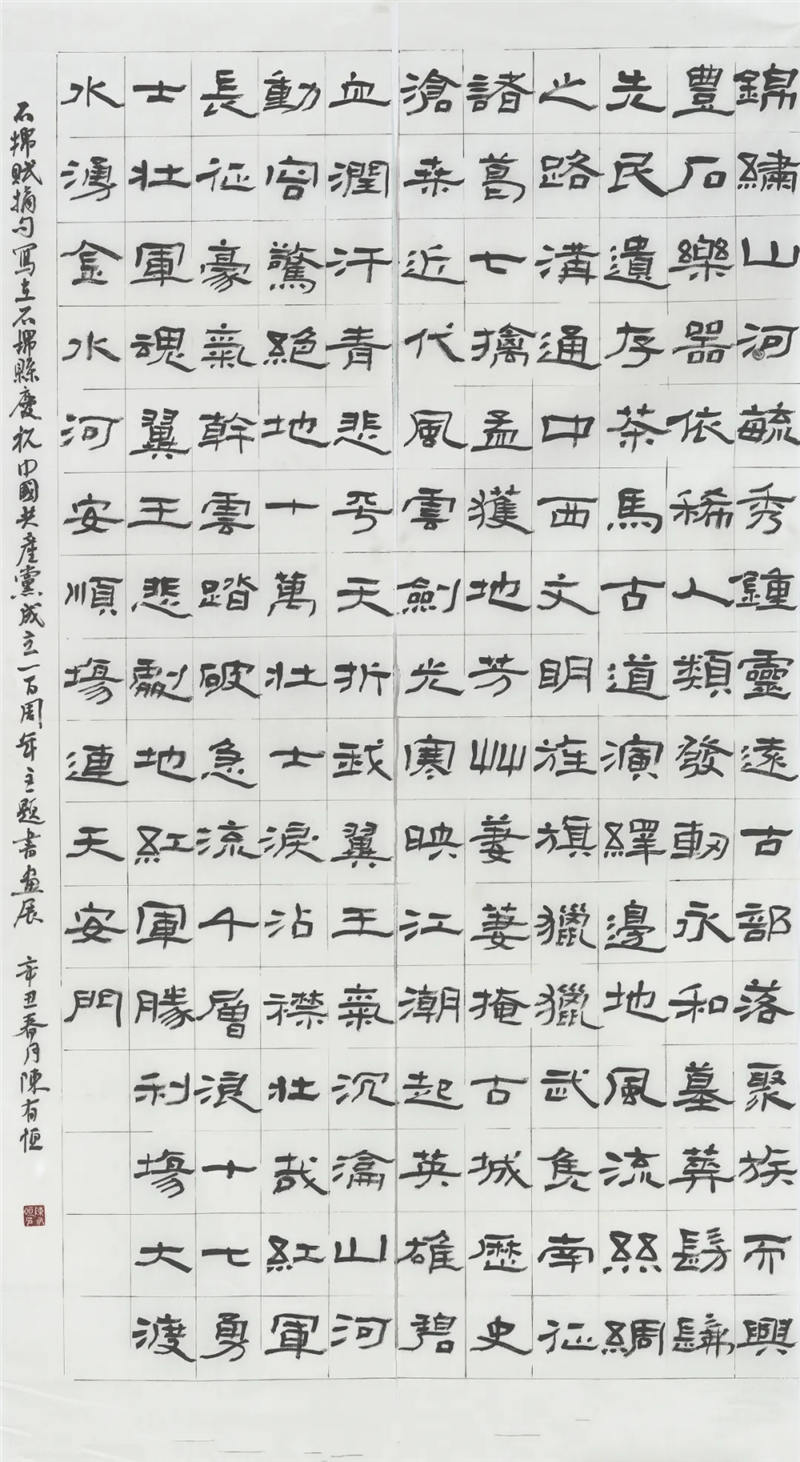 錦繡山河毓秀鍾靈遠古部落聚族而興
豐石樂器依稀人類發軔永和墓葬髣髴
先民遺存茶馬古道演繹邊地風流絲綢
之路溝通中西文明旌旗獵獵武侯南征
諸葛七擒孟獲地芳艸萋萋掩古城歷史
滄桑近代風雲劍光寒映江潮起英雄碧
血潤汗青悲乎天折武翼王氣沉淪山河
動容驚絕地十萬壯士淚沾襟壯哉紅軍
長征豪氣幹雲踏破急流千層浪十七勇
士壯軍魂翼王悲劇地紅軍勝利場大渡
水湧金水河安順場連天安門
石棉賦摘句寫在石棉縣慶祝中國共產黨成立一百周年主題書畫展 辛丑春月陳有恒